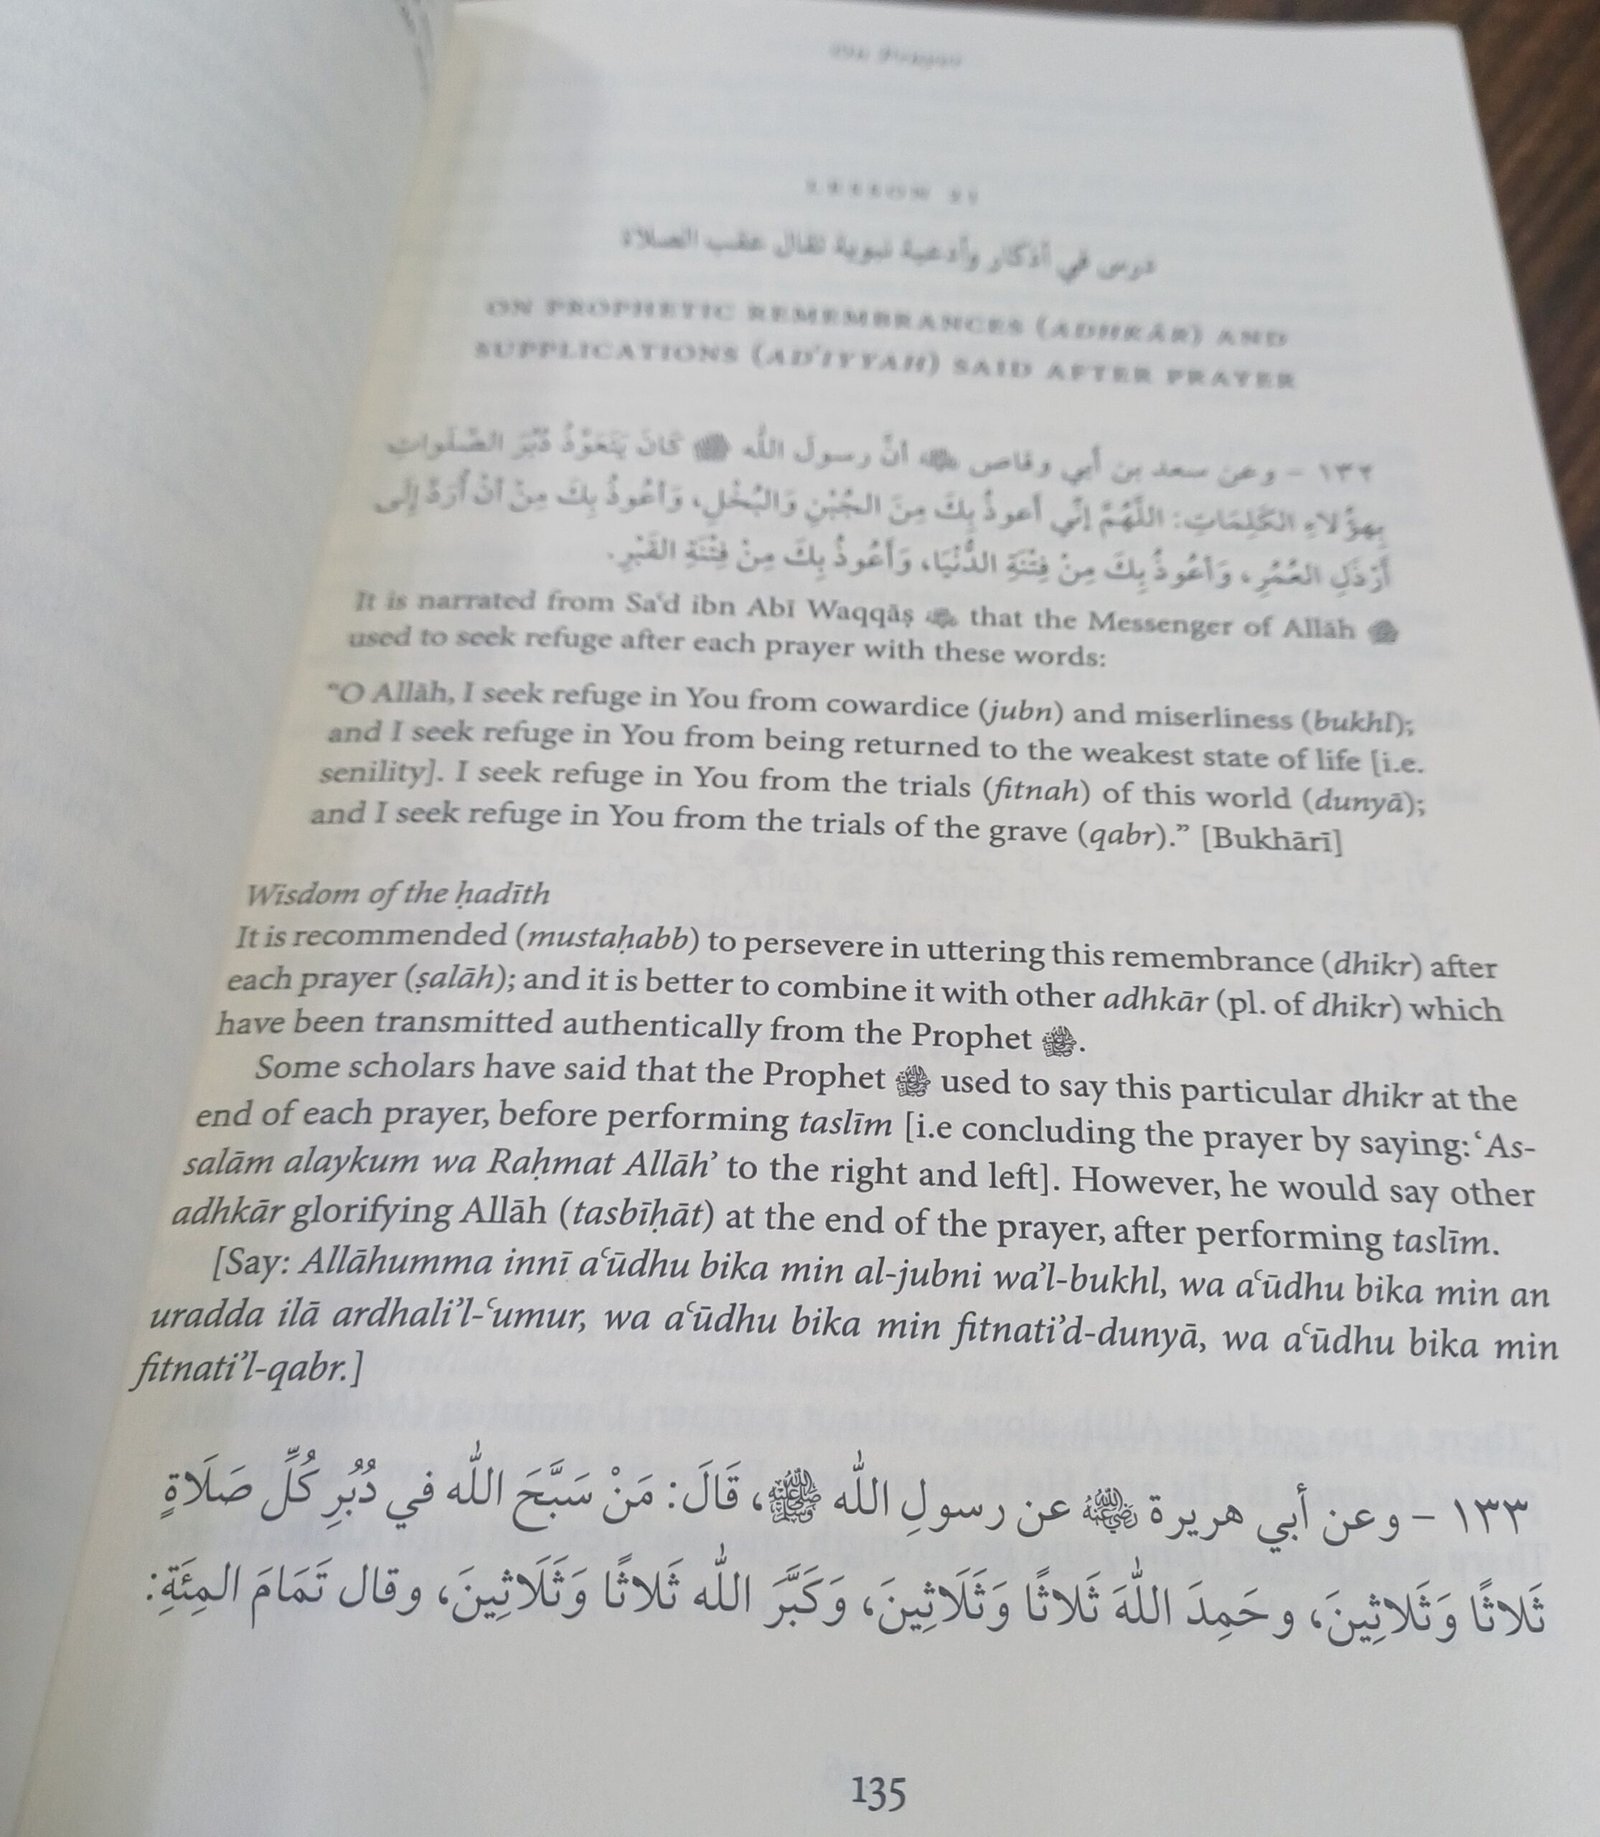 On Prayer
LESSON 51
درس في أذكار وأدعية نبوية تقال عقب الصلاة
ON PROPHETIC REMEMBRANCES (ADHKĀR) AND
SUPPLICATIONS (AD'IYYAH) SAID AFTER PRAYER
١٣٢ – وعن سعد بن أبي وقاص ؓ أنَّ رسولَ الله ﷺ كَانَ يَتَعَوَّذُ دُبُرَ الصَّلَواتِ
بِهؤُلاءِ الكَلِمَاتِ: اللَّهُمَّ إنِّي أعوذُ بِكَ مِنَ الجُبْنِ وَالبُخْلِ، وَأعُوذُ بِكَ مِنْ أنْ أُرَدَّ إِلَى
أَرْذَلِ العُمُرِ، وَأعُوذُ بِكَ مِنْ فِتْنَةِ الدُّنْيَا، وَأَعُوذُ بِكَ مِنْ فِتْنَةِ القَبْرِ.
It is narrated from Saʿd ibn Abī Waqqāṣ ؓ that the Messenger of Allāh ﷺ
used to seek refuge after each prayer with these words:
“O Allāh, I seek refuge in You from cowardice (jubn) and miserliness (bukhl);
and I seek refuge in You from being returned to the weakest state of life [i.e.
senility]. I seek refuge in You from the trials (fitnah) of this world (dunyā);
and I seek refuge in You from the trials of the grave (qabr).” [Bukhārī]
Wisdom of the ḥadīth
It is recommended (mustaḥabb) to persevere in uttering this remembrance (dhikr) after
each prayer (ṣalāh); and it is better to combine it with other adhkār (pl. of dhikr) which
have been transmitted authentically from the Prophet ﷺ.
Some scholars have said that the Prophet ﷺ used to say this particular dhikr at the
end of each prayer, before performing taslīm [i.e concluding the prayer by saying: ‘As-
salām alaykum wa Raḥmat Allāh’ to the right and left]. However, he would say other
adhkār glorifying Allāh (tasbīḥāt) at the end of the prayer, after performing taslīm.
[Say: Allāhumma innī aʿūdhu bika min al-jubni wa’l-bukhl, wa aʿūdhu bika min an
uradda ilā ardhali’l-ʿumur, wa aʿūdhu bika min fitnati’d-dunyā, wa aʿūdhu bika min
fitnati’l-qabr.]
١٣٣ – وعن أبي هريرة ؓ عن رسولِ الله ﷺ، قَالَ: مَنْ سَبَّحَ الله في دُبُرِ كُلِّ صَلَاةٍ
ثَلاثًا وَثَلاثِينَ، وحَمِدَ اللهَ ثَلاثًا وَثَلَاثِينَ، وَكَبَّرَ الله ثَلاثًا وَثَلَاثِينَ، وقال تَمَامَ المِئَةِ:
135